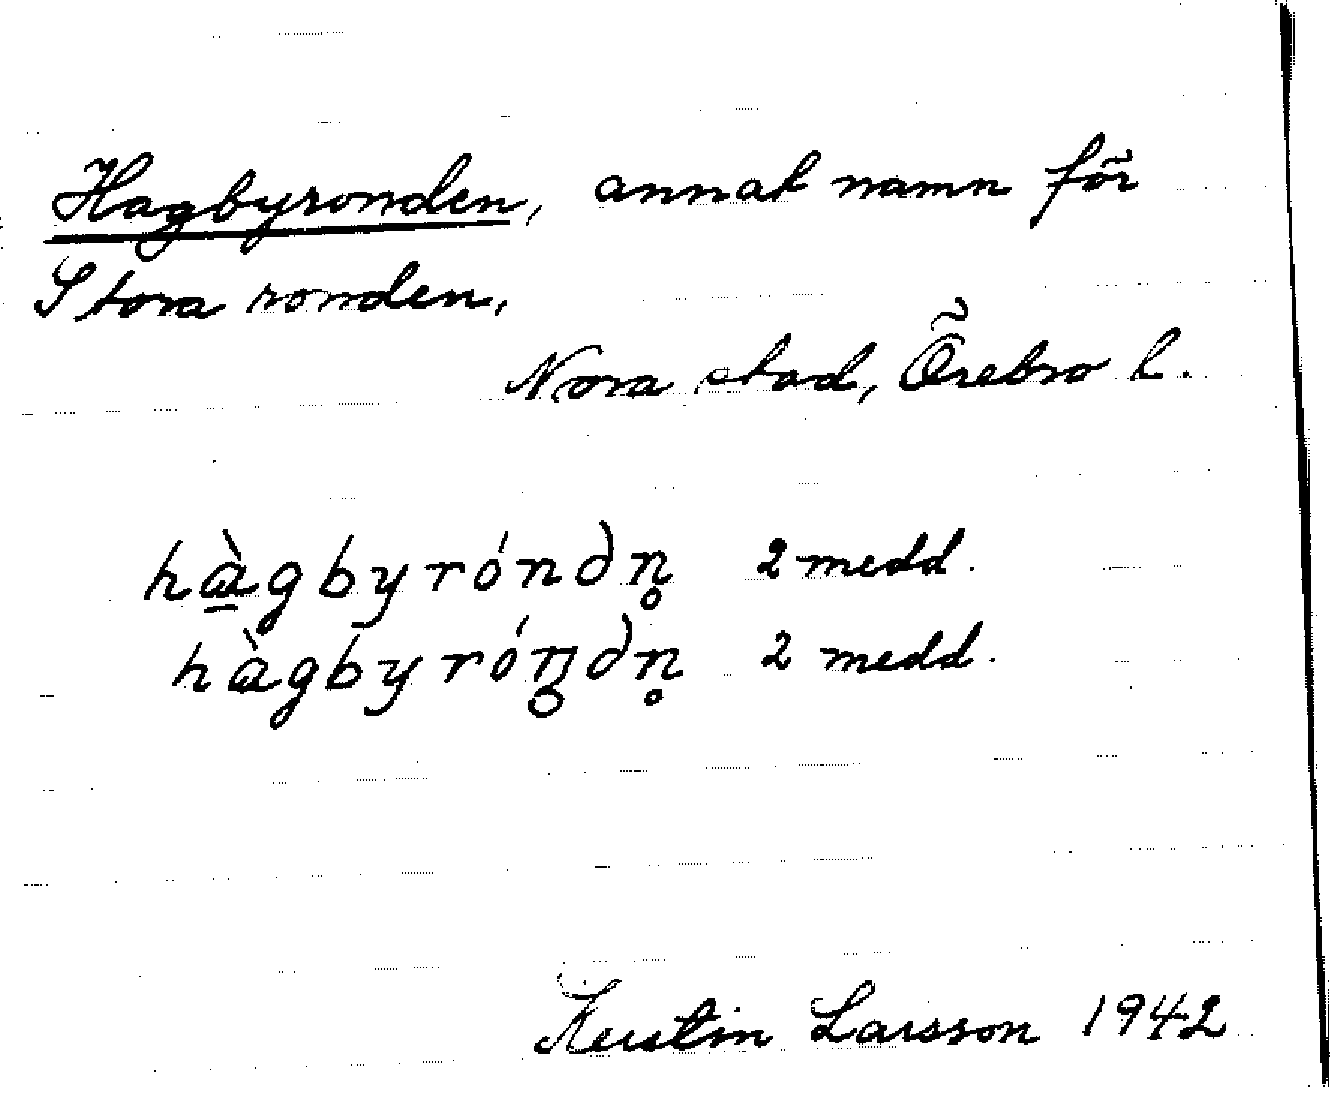 Hagbyronden, annat namn för
Stora ronden,
Nora stad, Örebro l.
hàgbyróndn̥ 2 medd.
hàgbyrón̥dn̥ 2 medd.
Kerstin Larsson 1942